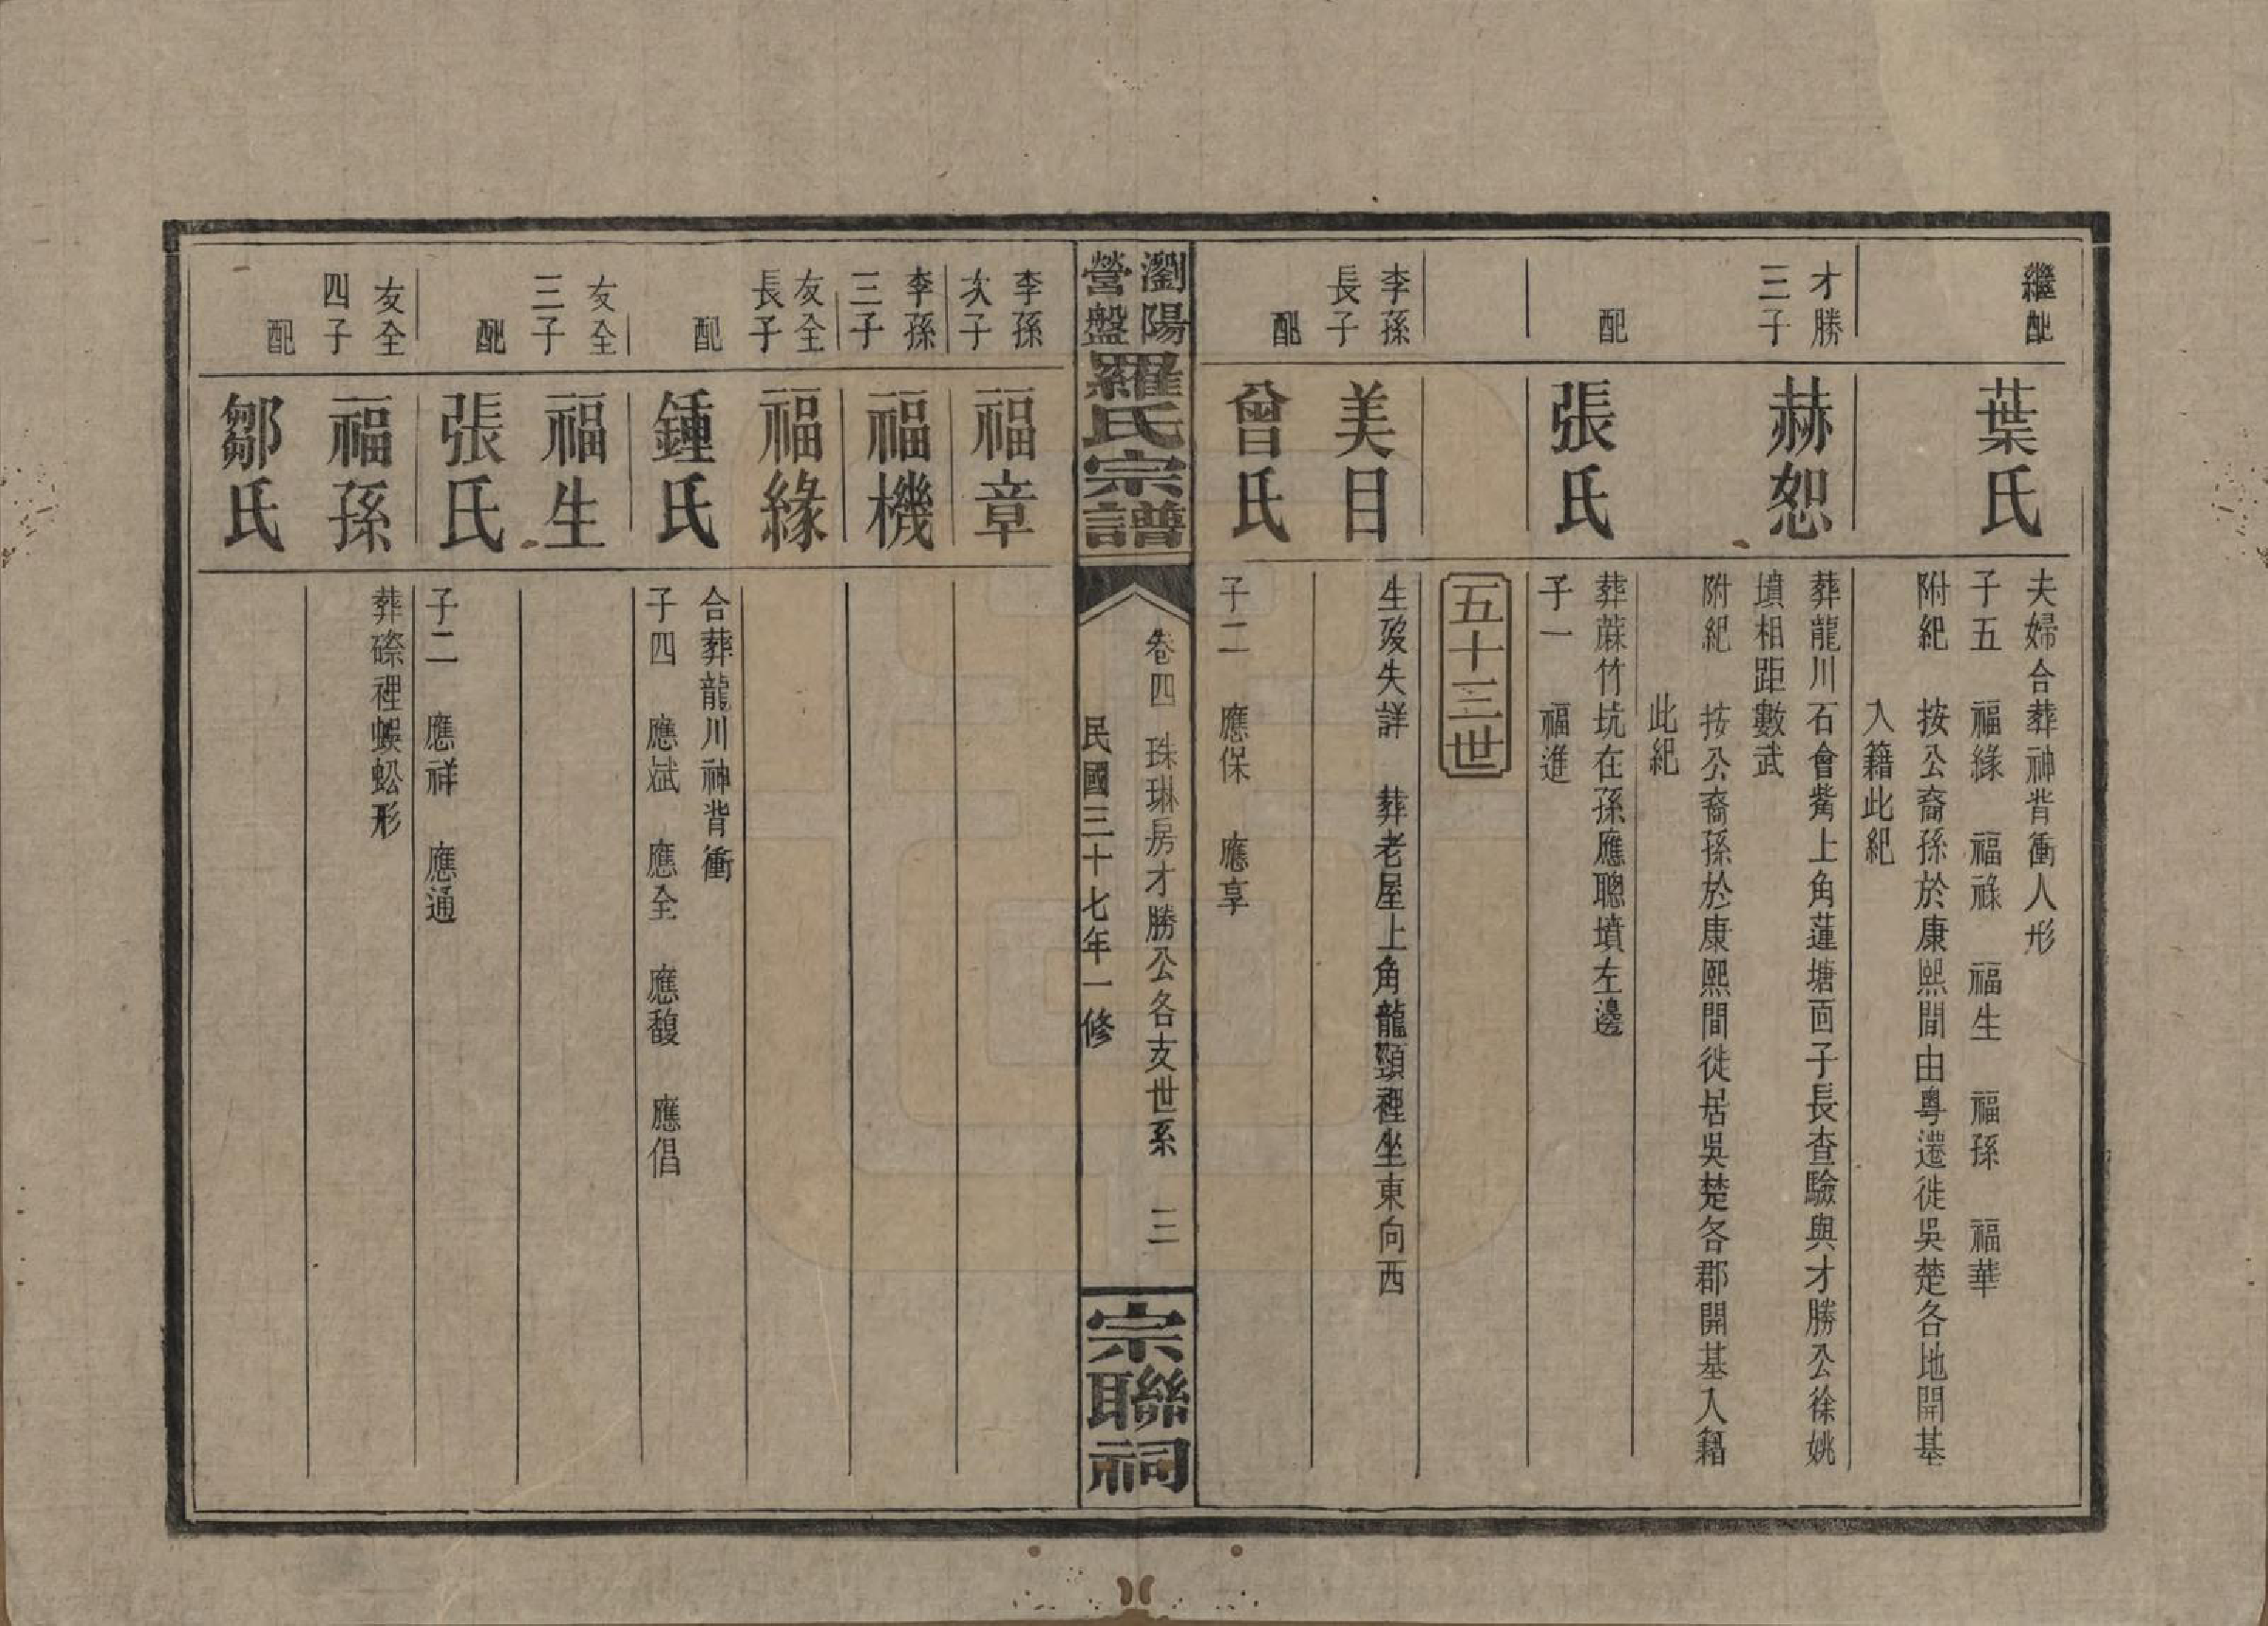 繼配
葉氏
夫婦合葬神背衝人形
子五　福緣　福祿　福生　福孫　福華
附紀　按公裔孫於康熙間由粵遷徙吳楚各地開基
入籍此紀
才勝
三子
赫恕
葬龍川石會觜上角蓮塘面子長查驗與才勝公徐姚
墳相距數武
附紀　按公裔孫於康熙間徙居吳楚各郡開基入籍
此紀
配
張氏
葬蔴竹坑在孫應聰墳左邊
子一　福進
五十三世
李孫
長子
美目
生歿失詳　葬老屋上角龍頸裡坐東向西
配
曾氏
子二　應保　應享
瀏陽
營盤
羅氏宗譜
卷四　珠琳房才勝公各支世系　三
民國三十七年一修
宗聯祠
李孫
次子
福章
李孫
三子
福機
友全
長子
福緣
合葬龍川神背衝
配
鍾氏
子四　應斌　應全　應馥　應倡
友全
三子
福生
配
張氏
子二　應祥　應通
友全
四子
福孫
葬磜裡蜈蚣形
配
鄒氏